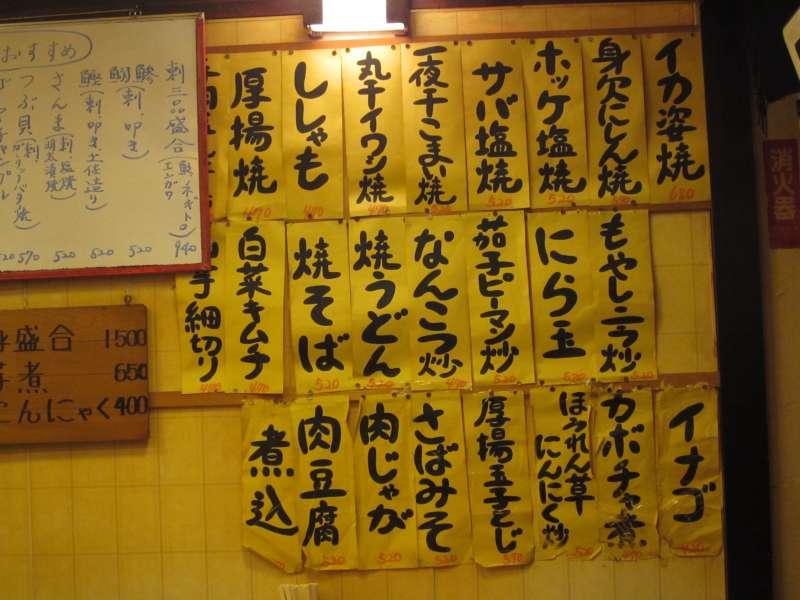 おすすめ
刺三品盛合(魚、ネギトロ、エンガワ) 940
鯵(刺、叩き) 520
鰹(刺、叩き、土佐造り) 520
さんま(刺、塩焼) 520
つぶ貝 570
盛合 1500
煮 650
んにゃく 400
イカ姿焼 680
身欠にしん焼
ホッケ塩焼 520
サバ塩焼 520
一夜干こまい焼
丸干イワシ焼 470
ししゃも 470
厚揚焼 470
もやしニラ炒
にら玉 520
茄子ピーマン炒 520
なんこつ炒 490
焼うどん 520
焼そば 520
白菜キムチ 470
細切り
イナゴ
カボチャ煮
ほうれん草にんにく炒 520
厚揚玉子とじ 520
さばみそ 520
肉じゃが 520
肉豆腐 520
煮込
消火器